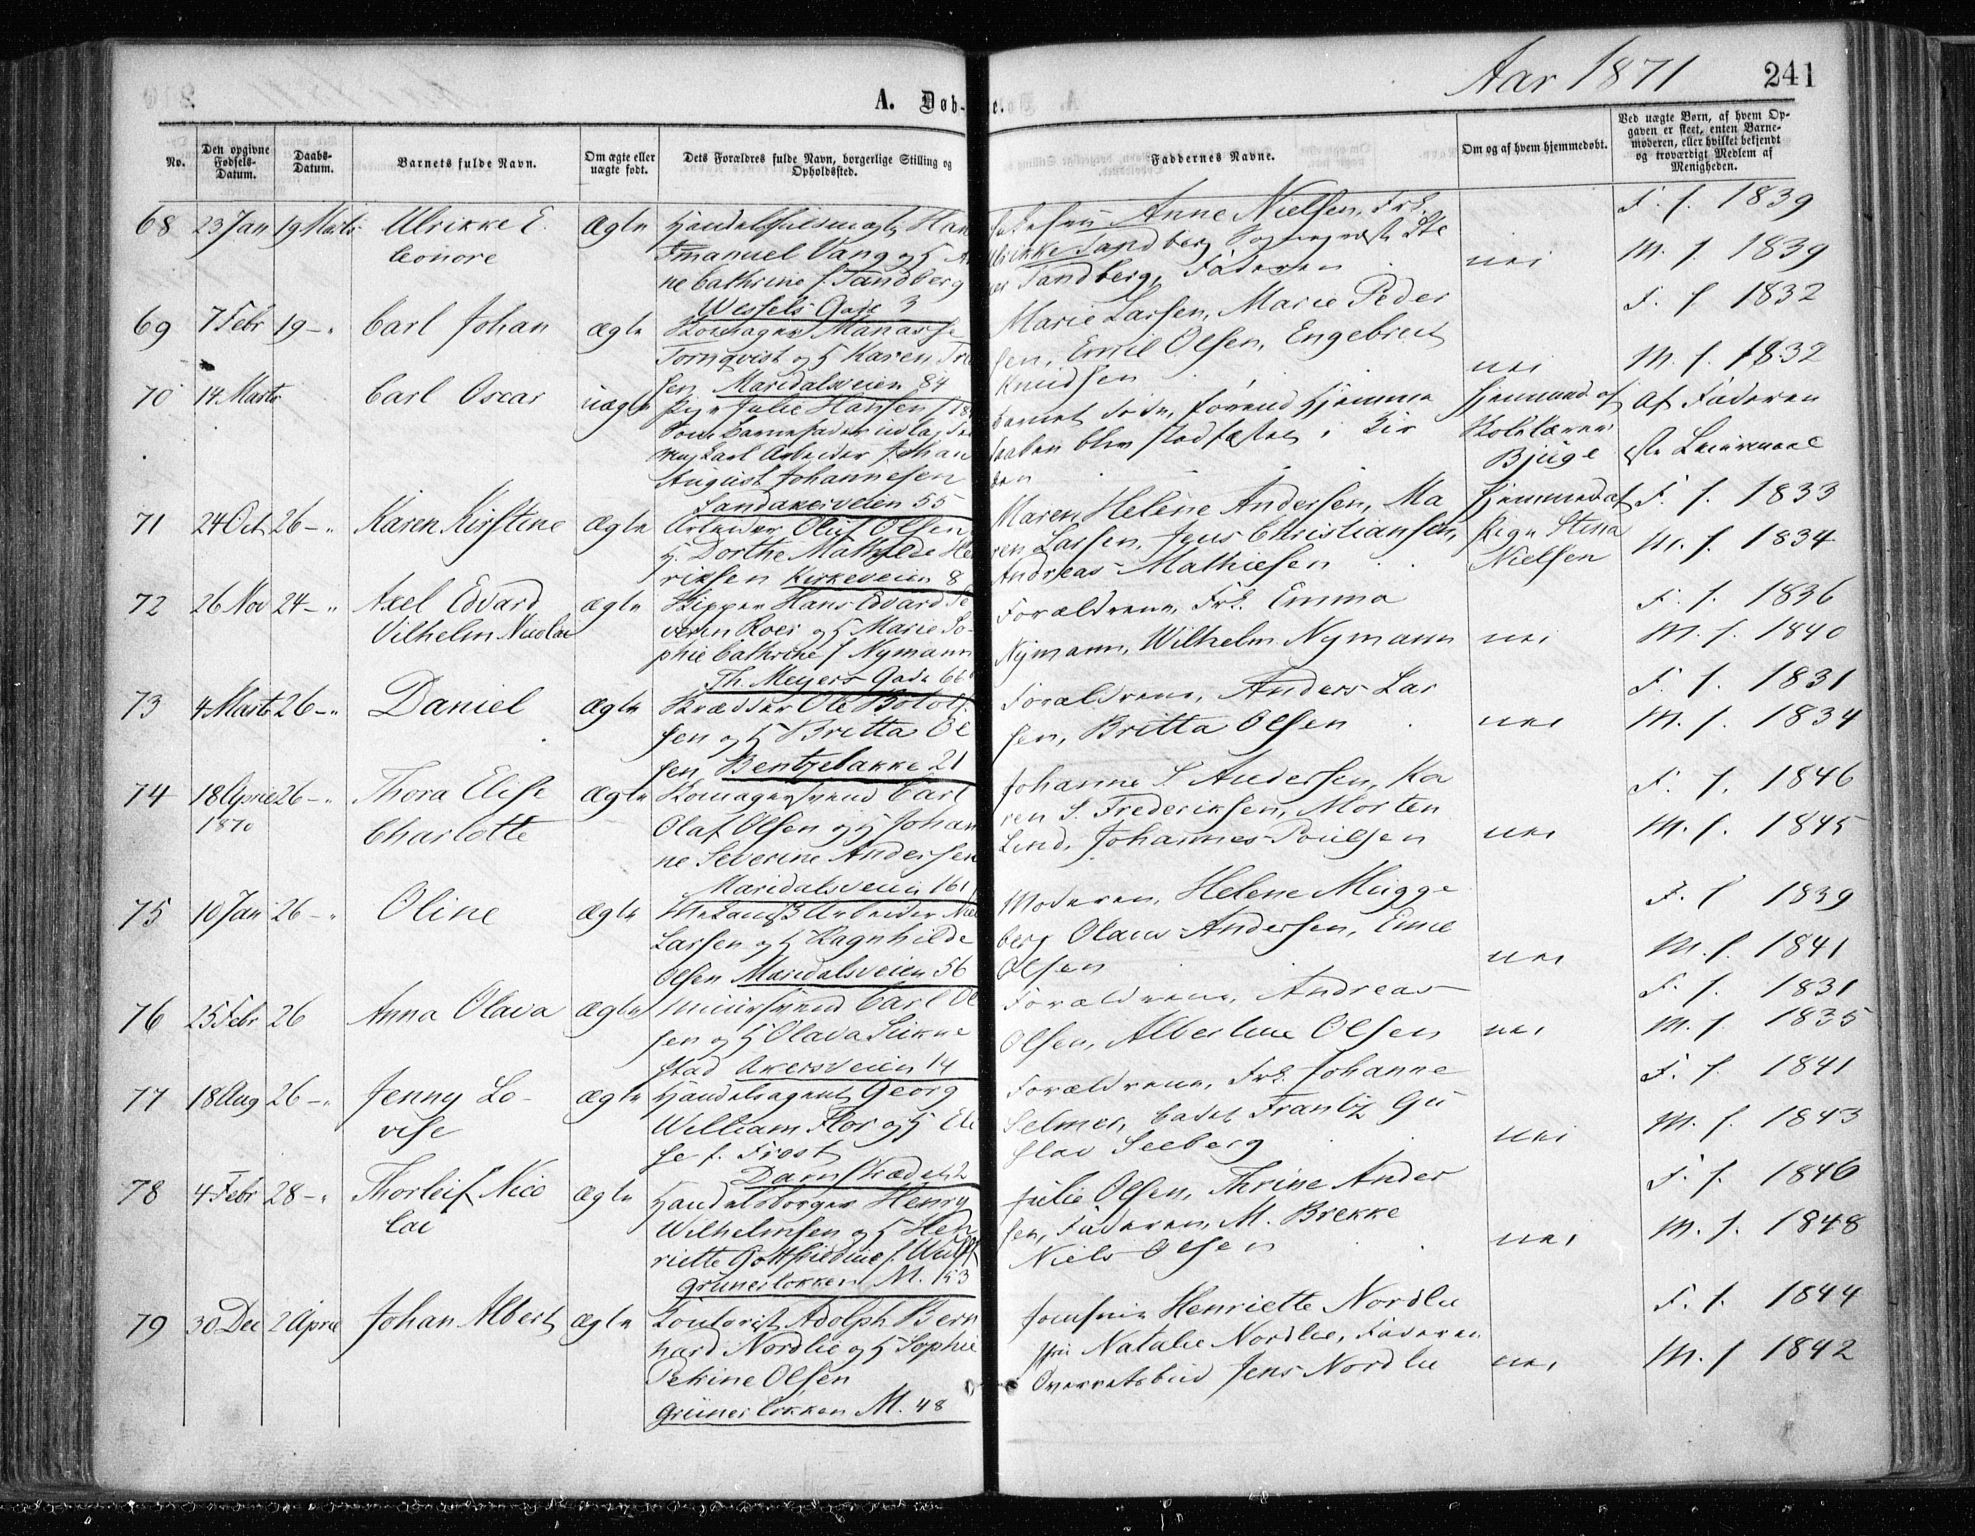 Aar 1871 241
A. Døb-
No.
Den opgivne Fødsels-Datum.
Daabs-Datum.
Barnets fulde Navn.
Om ægte eller uægte født.
Dets Forældres fulde Navn, borgerlige Stilling og Opholdssted.
Faddernes Navne.
Om og af hvem hjemmedøbt.
Ved uægte Børn, af hvem Opgaven er skeet, enten Barnemoderen, eller hvilket bekjendt og troværdigt Medlem af Menigheden.
68 23 Jan 19 Marts Ulrikke E. ægte
leonore
Emanuel Vang og H
ne Cathrine f. Tandberg
Wessels Gade 3
Anne Nielsen, Frk.
Ulrikke Tandberg
Tandberg, Faderen
nei
F. f. 1839
M. f. 1839
69 7 Febr 19 - " Carl Johan ægte
Tornqvist og H Karen
sen. Maridalsveien 84
Marie Larsen, Marie Peder
sen, Emil Olsen, Engebret
Knudsen
nei
F. f. 1832
M. f. 1832
70 14 Marts Carl Oscar uægte
Pige Julie Hansen f
August Johannesen
Sandakerveien 55
Barnet døde, førend Hjemme
daaben blev stadfæstet i Kir
ken
Hjemmed. af
Bjuge
Af Faderen
1ste Leiermaal
71 24 Oct 26 - " Karen Kirstine ægte
Arbeider Oluf Olsen
H. Dorthe Mathilde He
riksen Kirkeveien 8
Maren Helene Andersen, Ma
ren Larsen, Jens Christiansen,
Andreas Mathiesen
Hjemmed af
Pige Stina
Nielsen
F. f. 1833
M. f. 1834
72 26 Nov 24 - " Axel Edvard ægte
Vilhelm Nicolai
Skipper Hans Edvard Se
verin Roer og H Marie So-
phie Cathrine f Nymann
Th. Meyers Gade 66
Forældrene, Frk. Emma
Nymann, Wilhelm Nymann
nei
F. f. 1836
M. f. 1840
73 4 Marts 26 - " Daniel ægte
Skrædder Ole Botolf
sen og H Britta Ol
sen Bentzebakke 21
Forældrene, Anders Lar
sen, Britta Olsen
nei
F. f. 1831
M. f. 1834
74 18 April 26 - " Thora Elise ægte
1870 Charlotte
Carl
Olaf Olsen og H Johan
ne Severine Andersen
Maridalsveien 161
Johanne S. Andersen, Ka
ren S. Frederiksen, Morten
Lind, Johannes Poulsen
nei
F. f. 1846
M. f. 1845
75 10 Jan 26 - " Oline ægte
Larsen og H Ragnhilde
Olsen Maridalsveien 56
Moderen, Helene Mugge
berg Olaus Andersen, Emil
Olsen
nei
F. f 1839
M. f. 1841
76 25 Febr 26 Anna Olava ægte
Muursvend Carl Ol
sen og H Olava
stad Akersveien 14
Forældrene, Andreas
Olsen, Albertine Olsen
nei
F. f. 1831
M. f. 1835
77 18 Aug 26 - " Jenny Lo- ægte
vise
Handelsagent Georg
William Flor og H Eli
se f. Frost
Damstrædet 2
Forældrene, Frk. Johanne
Selmer, Cadet Frantz Gu
stav Seeberg
nei
F. f. 1841
M. f. 1843
78 4 Febr 28 - " Thorleif Nico ægte
lai
Handelsborger Henry
Wilhelmsen og H Hen
riette Gottfriedine f. Wulff
Grünerløkken M. 153
Julie Olsen, Thrine Ander
sen, Faderen, M. Brekke
Niels Olsen
nei
F. f. 1846
M. f. 1848
79 30 Dec 2 April Johan Albert ægte
Contorist Adolph Bern
hard Nordlie og H Sophie
Petrine Olsen
Grünerløkken M. 48
Jomfru Henriette Nordlie
Natalie Nordlie, Faderen
Overretsbud Jens Nordlie
nei
F. f. 1844
M. f 1842